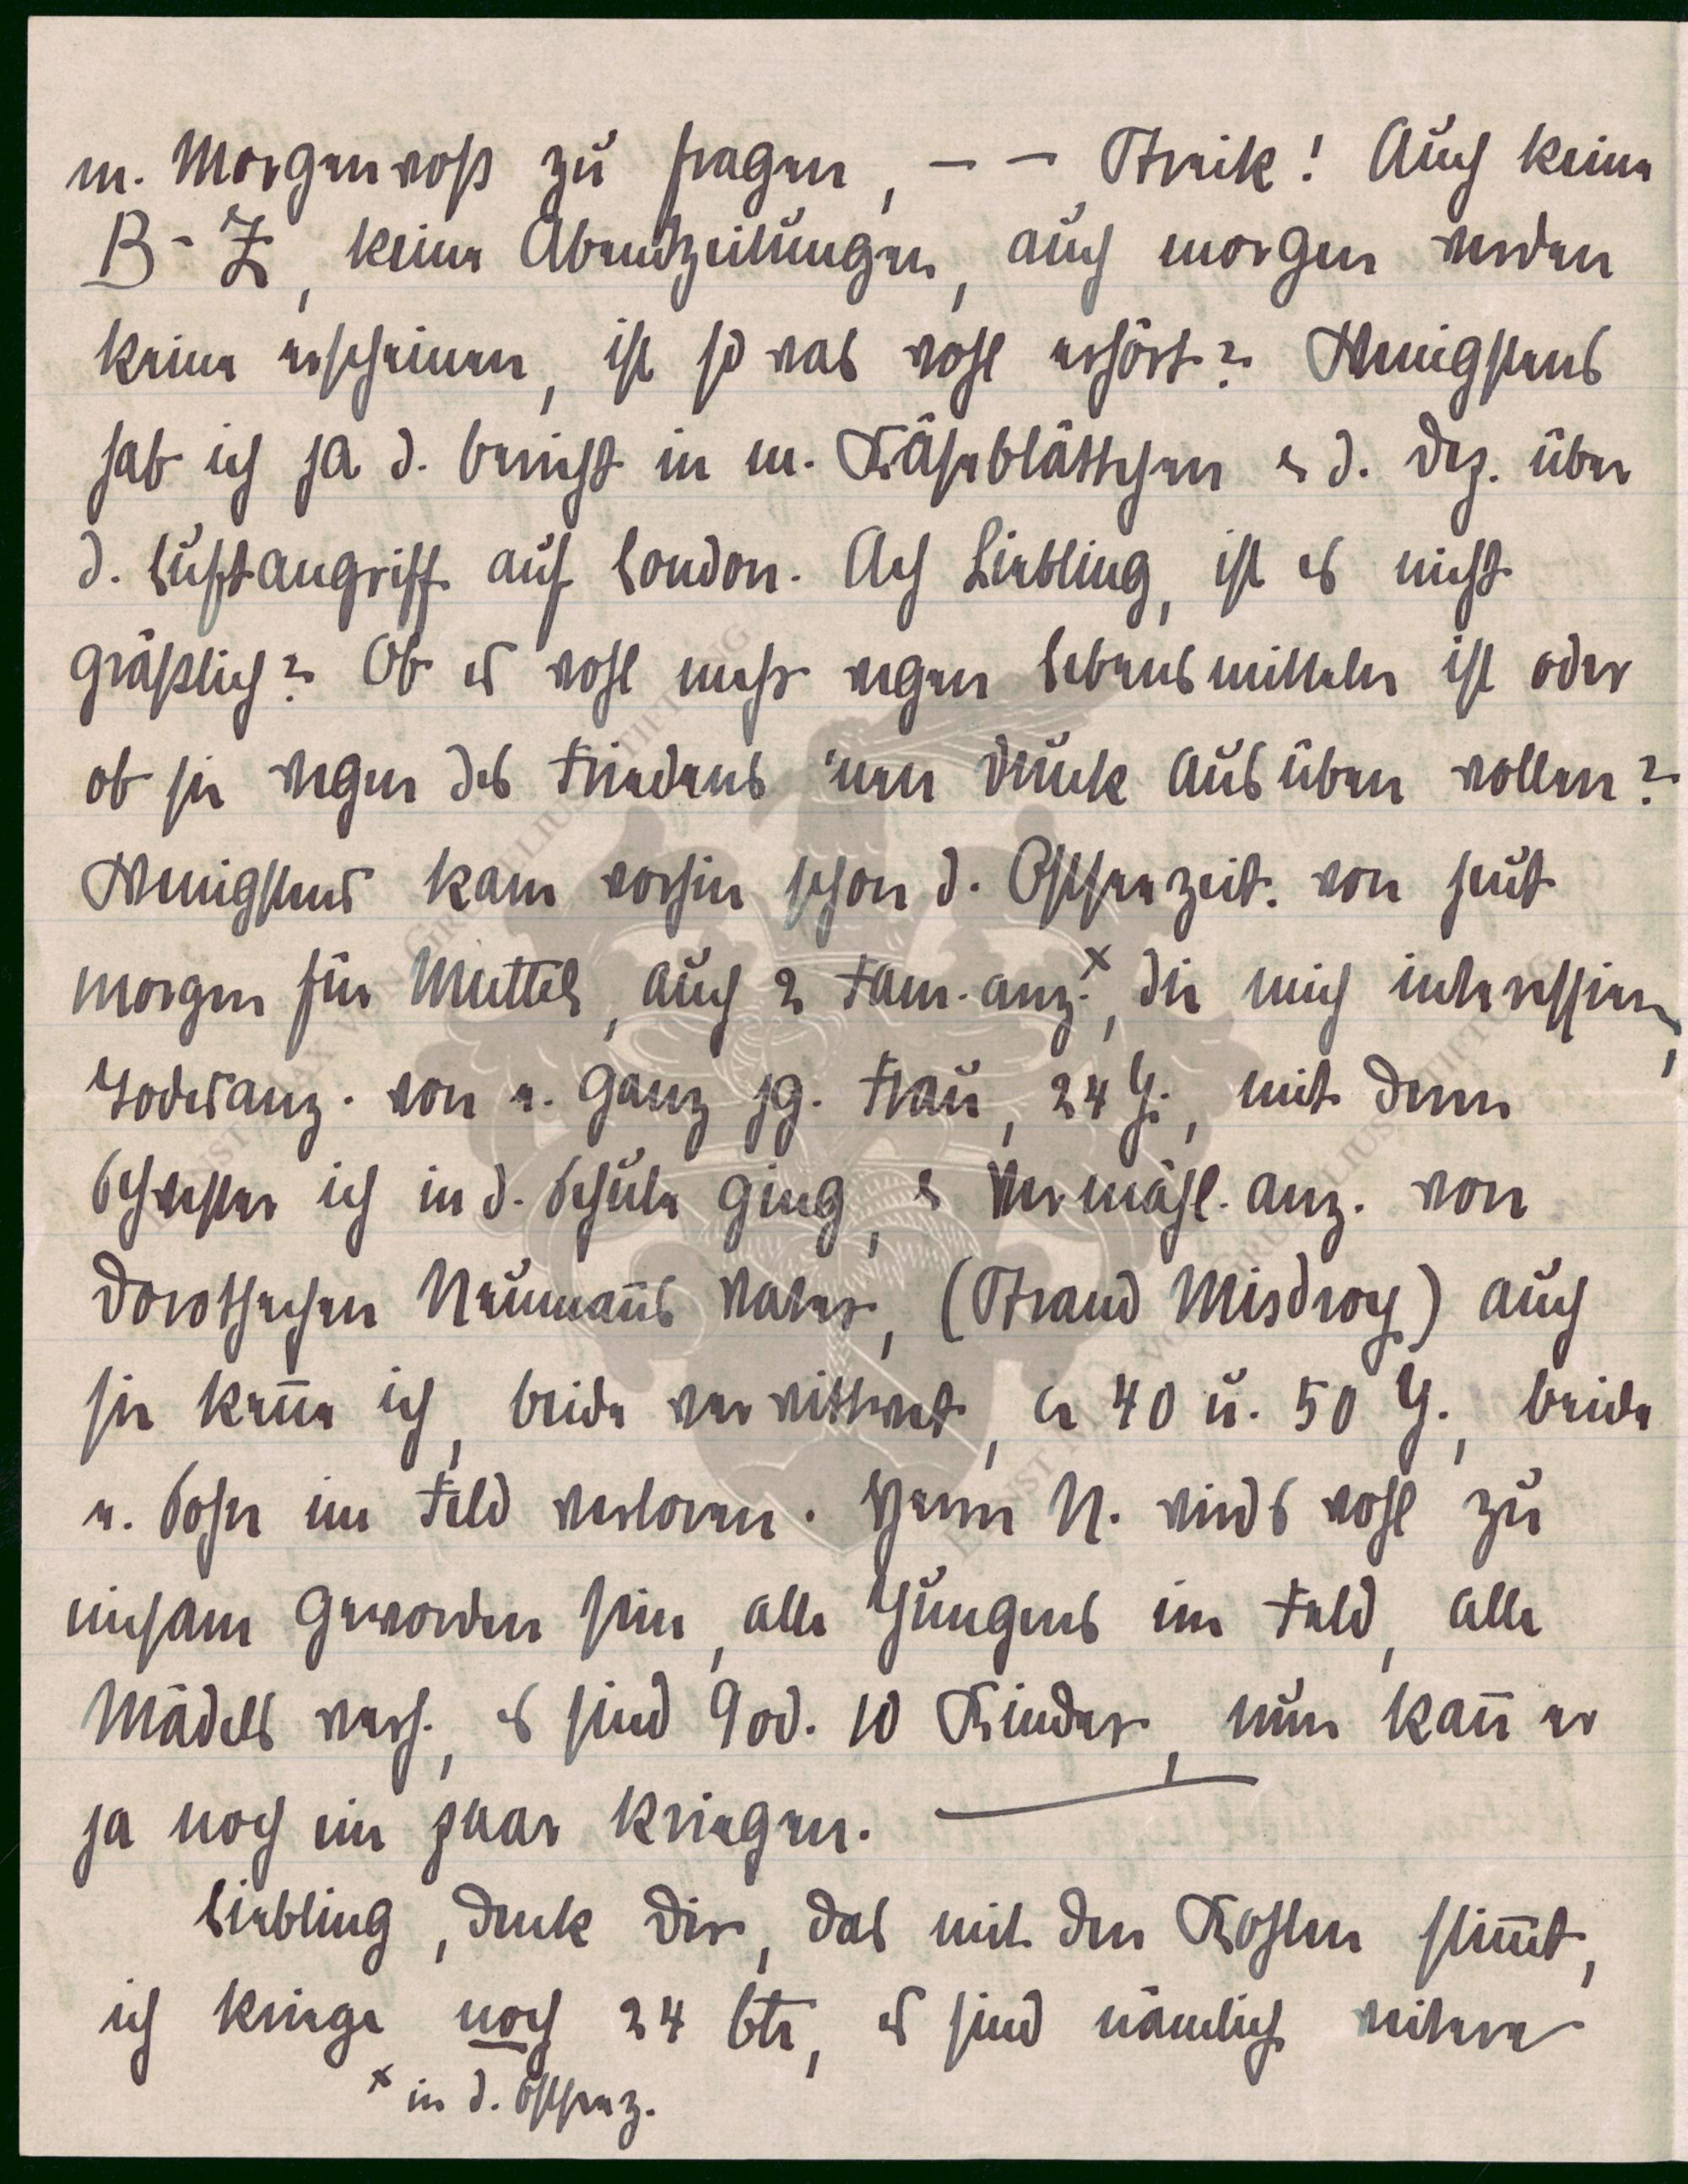 m. Morgenvoss zu fragen, – – Streik! Auch keine
B-Z, keine Abendzeitungen, auch morgen werden
keine erscheinen, ist so was wohl erhört? Wenigstens
hab ich ja d. Bericht in m. Käseblättchen u d. Dez. über
d. Luftangriff auf London. Ach Liebling, ist es nicht
gräßlich? Ob es wohl mehr wegen Lebensmitteln ist oder
ob sie wegen des Friedens 'nen Druck ausüben wollen?
Wenigstens kam vorhin schon d. Ostseezeit. von heut
morgen für Muttel, auch 2 Fam.anz.ˣ, die mich interessieren,
Todesanz. von e. ganz jg. Frau, 24 J., mit deren
Schwester ich in d. Schule ging, u Vermähl.anz. von
Dorothechen Neumanns Vater, (Strand Misdroy) auch
sie kenne ich, beide verwittwet, ca 40 u. 50 J., beide
e. Sohn im Feld verloren. Herrn N. wirds wohl zu
einsam geworden sein, alle Jungens im Feld, alle
Mädels verh., es sind 9 od. 10 Kinder, nun kann er
ja noch ein paar kriegen. —
Liebling, denk Dir, das mit den Kohlen stimmt,
ich kriege noch 24 Ctr, es sind nämlich weitere
ˣ in d. Ostseez.
ERNST MAX VON GRUNELIUS STIFTUNG
ERNST MAX VON GRUNELIUS STIFTUNG